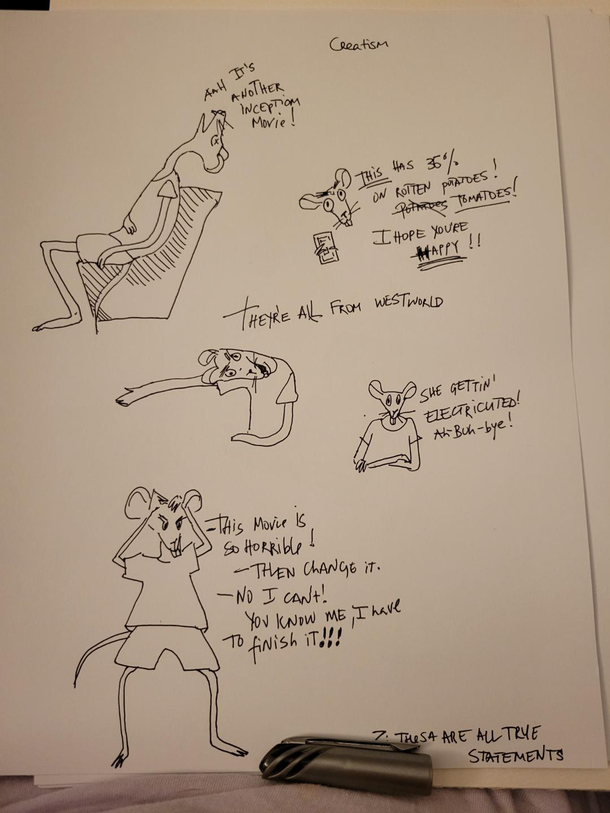 Creatism
AAH IT'S
ANOTHER
INCEPTION
MOVIE!
THIS HAS 35%
ON ROTTEN POTATOES!
POTATOES TOMATOES!
I HOPE YOU'RE
HAPPY!!
THEY'RE ALL FROM WESTWORLD
SHE GETTIN'
ELECTRICUTED!
Ah-Buh-bye!
-THIS MOVIE IS
SO HORRIBLE!
-THEN CHANGE IT.
-NO I CAN'T!
YOU KNOW ME, I HAVE
TO FINISH IT!!!
THESA ARE ALL TRYE
STATEMENTS